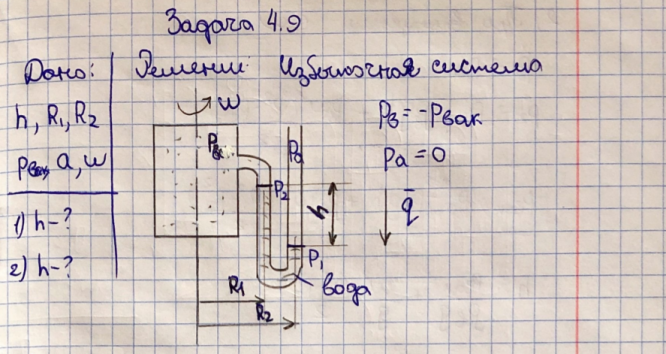 Задача 4.9
Дано:
h, R₁, R₂
Pвак, a, ω
1) h-?
2) h-?
Решение: Избыточная система
ω
Pв
Pa
P₂
h
P₁
вода
R₁
R₂
Pв = -Pвак
Pa = 0
q̄